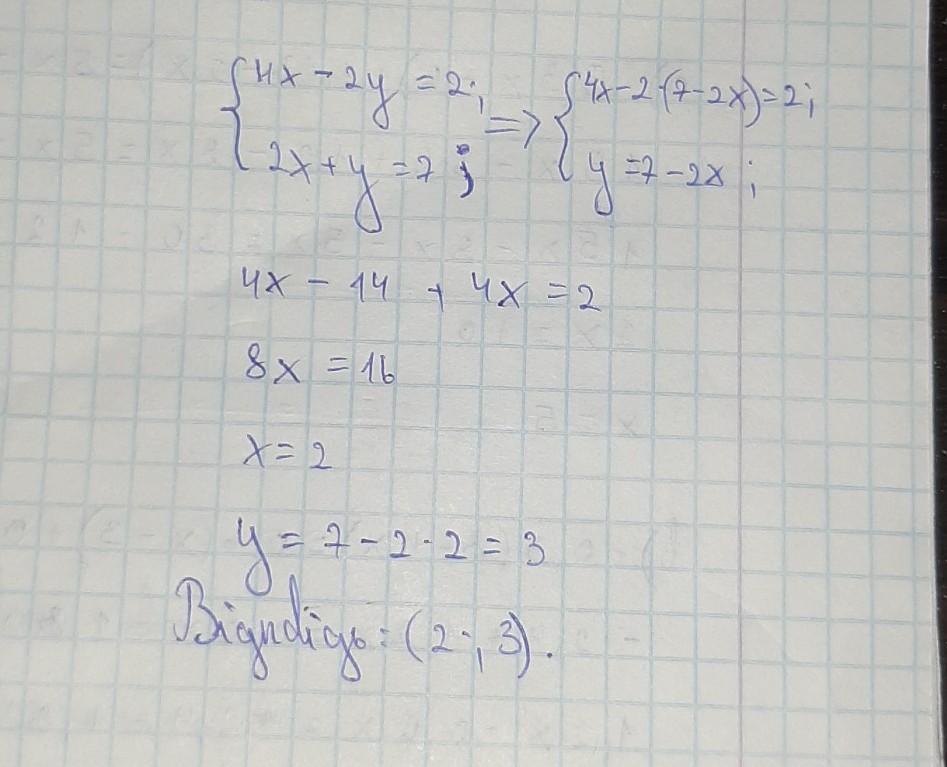 {4x - 2y = 2; => {4x-2·(7-2x)=2;
2x+y=7; y=7-2x;
4x - 14 + 4x = 2
8x = 16
x = 2
y = 7 - 2 · 2 = 3
Відповідь: (2; 3).